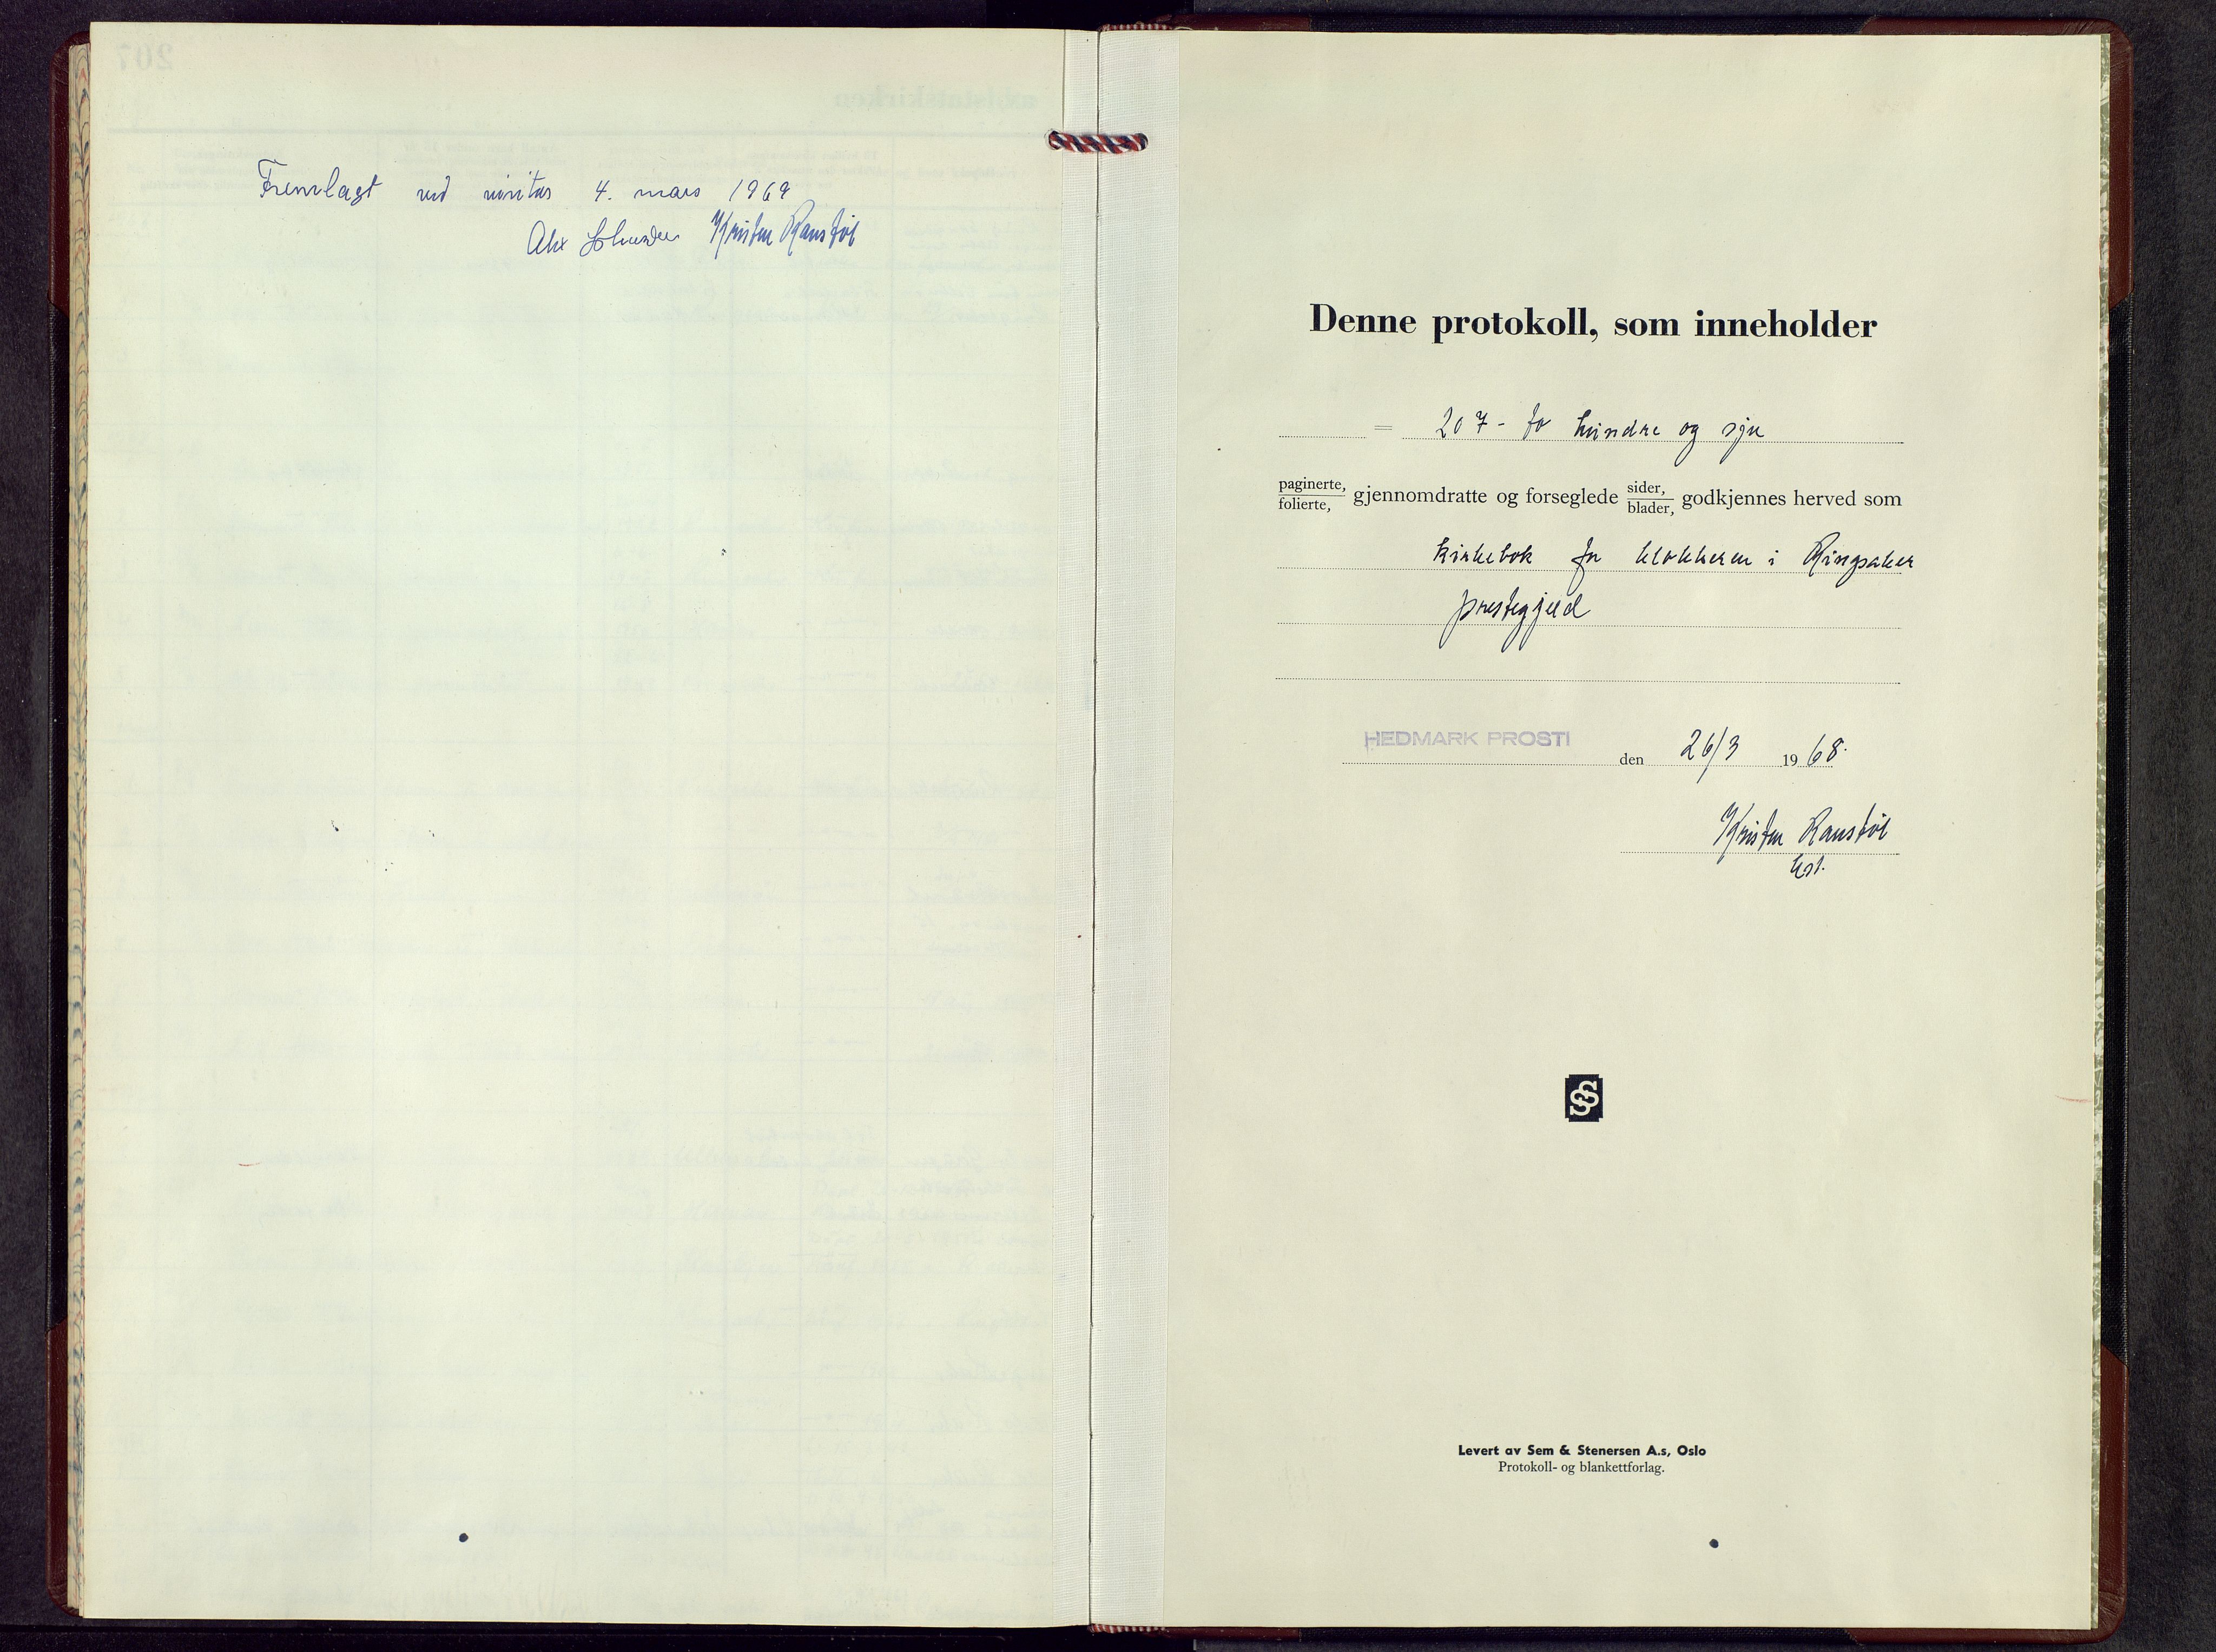 Fremlagt ved visitas 4. mars 1969
Alex Johnson Kristen Ranstøl
Denne protokoll, som inneholder
= 207 - to hundre og sju
paginerte,
folierte, gjennomdratte og forseglede sider,
blader, godkjennes herved som
kirkebok for klokkeren i Ringsaker
prestegjeld
HEDMARK PROSTI den 26/3 1968.
Kristen Ranstøl
kst.
SS
Levert av Sem & Stenersen A.s, Oslo
Protokoll- og blankettforlag.